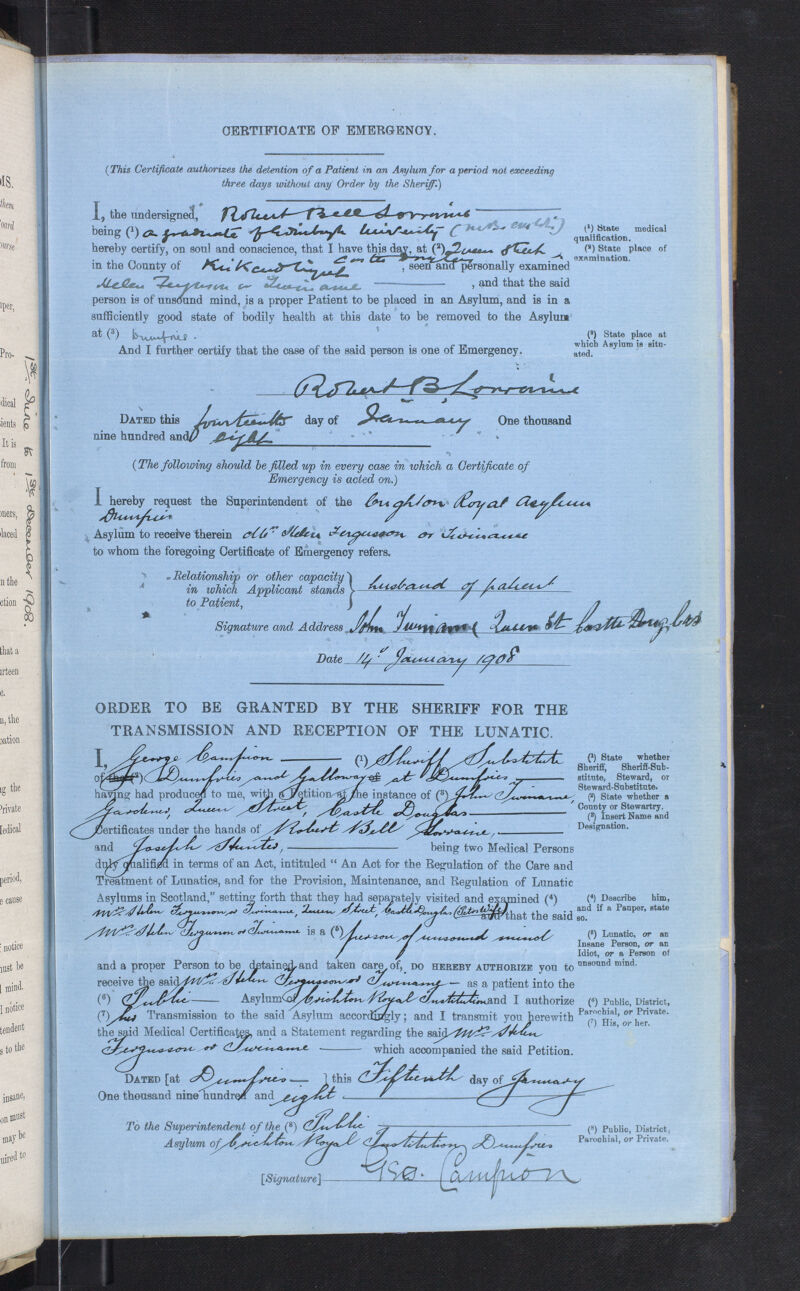 CERTIFICATE OF EMERGENCY.
(This Certificate authorizes the detention of a Patient in an Asylum for a period not exceeding
three days without any Order by the Sheriff.)
I, the undersigned, Robert Bell Lorraine
being (1) a graduate of Edinburgh University
hereby certify, on soul and conscience, that I have this day, at (2) Queen Street
Castle Douglas
in the County of Kirkcudbright, seen and personally examined
Helen Ferguson or Twiname, and that the said
person is of unsound mind, is a proper Patient to be placed in an Asylum, and is in a
sufficiently good state of bodily health at this date to be removed to the Asylum
at (3) Dumfries.
And I further certify that the case of the said person is one of Emergency.
(1) State medical
qualification.
(2) State place of
examination.
(3) State place at
which Asylum is situ-
ated.
Robert B Lorraine
DATED this fourteenth day of January One thousand
nine hundred and eight
(The following should be filled up in every case in which a Certificate of
Emergency is acted on.)
I hereby request the Superintendent of the Crighton Royal Asylum
Dumfries
Asylum to receive therein Mrs Helen Fergusson or Twiname
to whom the foregoing Certificate of Emergency refers.
Relationship or other capacity
in which Applicant stands
to Patient,
husband of patient
Signature and Address John Twiname Queen St Castle Douglas
Date 14th January 1908
ORDER TO BE GRANTED BY THE SHERIFF FOR THE
TRANSMISSION AND RECEPTION OF THE LUNATIC.
I, George Campion (1) Sheriff Substitute
of (2) Dumfries and Galloway at Dumfries
having had produced to me, with a Petition at the instance of (3) John Twiname,
Gardener, Queen Street, Castle Douglas
Certificates under the hands of Robert Bell Lorraine,
and Joseph Hunter, being two Medical Persons
duly qualified in terms of an Act, intituled " An Act for the Regulation of the Care and
Treatment of Lunatics, and for the Provision, Maintenance, and Regulation of Lunatic
Asylums in Scotland," setting forth that they had separately visited and examined (4)
Mrs Helen Fergusson or Twiname, Queen Street, Castle Douglas (Petrs Wife) and that the said
Mrs Helen Fergusson or Twiname is a (5) person of unsound mind
and a proper Person to be detained and taken care of, DO HEREBY AUTHORIZE you to
receive the said Mrs Helen Fergusson or Twiname as a patient into the
(6) Public Asylum of Crichton Royal Institution and I authorize
(7) her Transmission to the said Asylum accordingly; and I transmit you herewith
the said Medical Certificates, and a Statement regarding the said Mrs Helen
Fergusson or Twiname which accompanied the said Petition.
DATED [at Dumfries ] this Fifteenth day of January
One thousand nine hundred and eight
To the Superintendent of the (8) Public
Asylum of Crichton Royal Institution, Dumfries
[Signature] Geo. Campion
(1) State whether
Sheriff, Sheriff-Sub-
stitute, Steward, or
Steward-Substitute.
(2) State whether a
County or Stewartry.
(3) Insert Name and
Designation.
(4) Describe him,
and if a Pauper, state
so.
(5) Lunatic, or an
Insane Person, or an
Idiot, or a Person of
unsound mind.
(6) Public, District,
Parochial, or Private.
(7) His, or her.
(8) Public, District,
Parochial, or Private.
1st June to 1st December 1908.